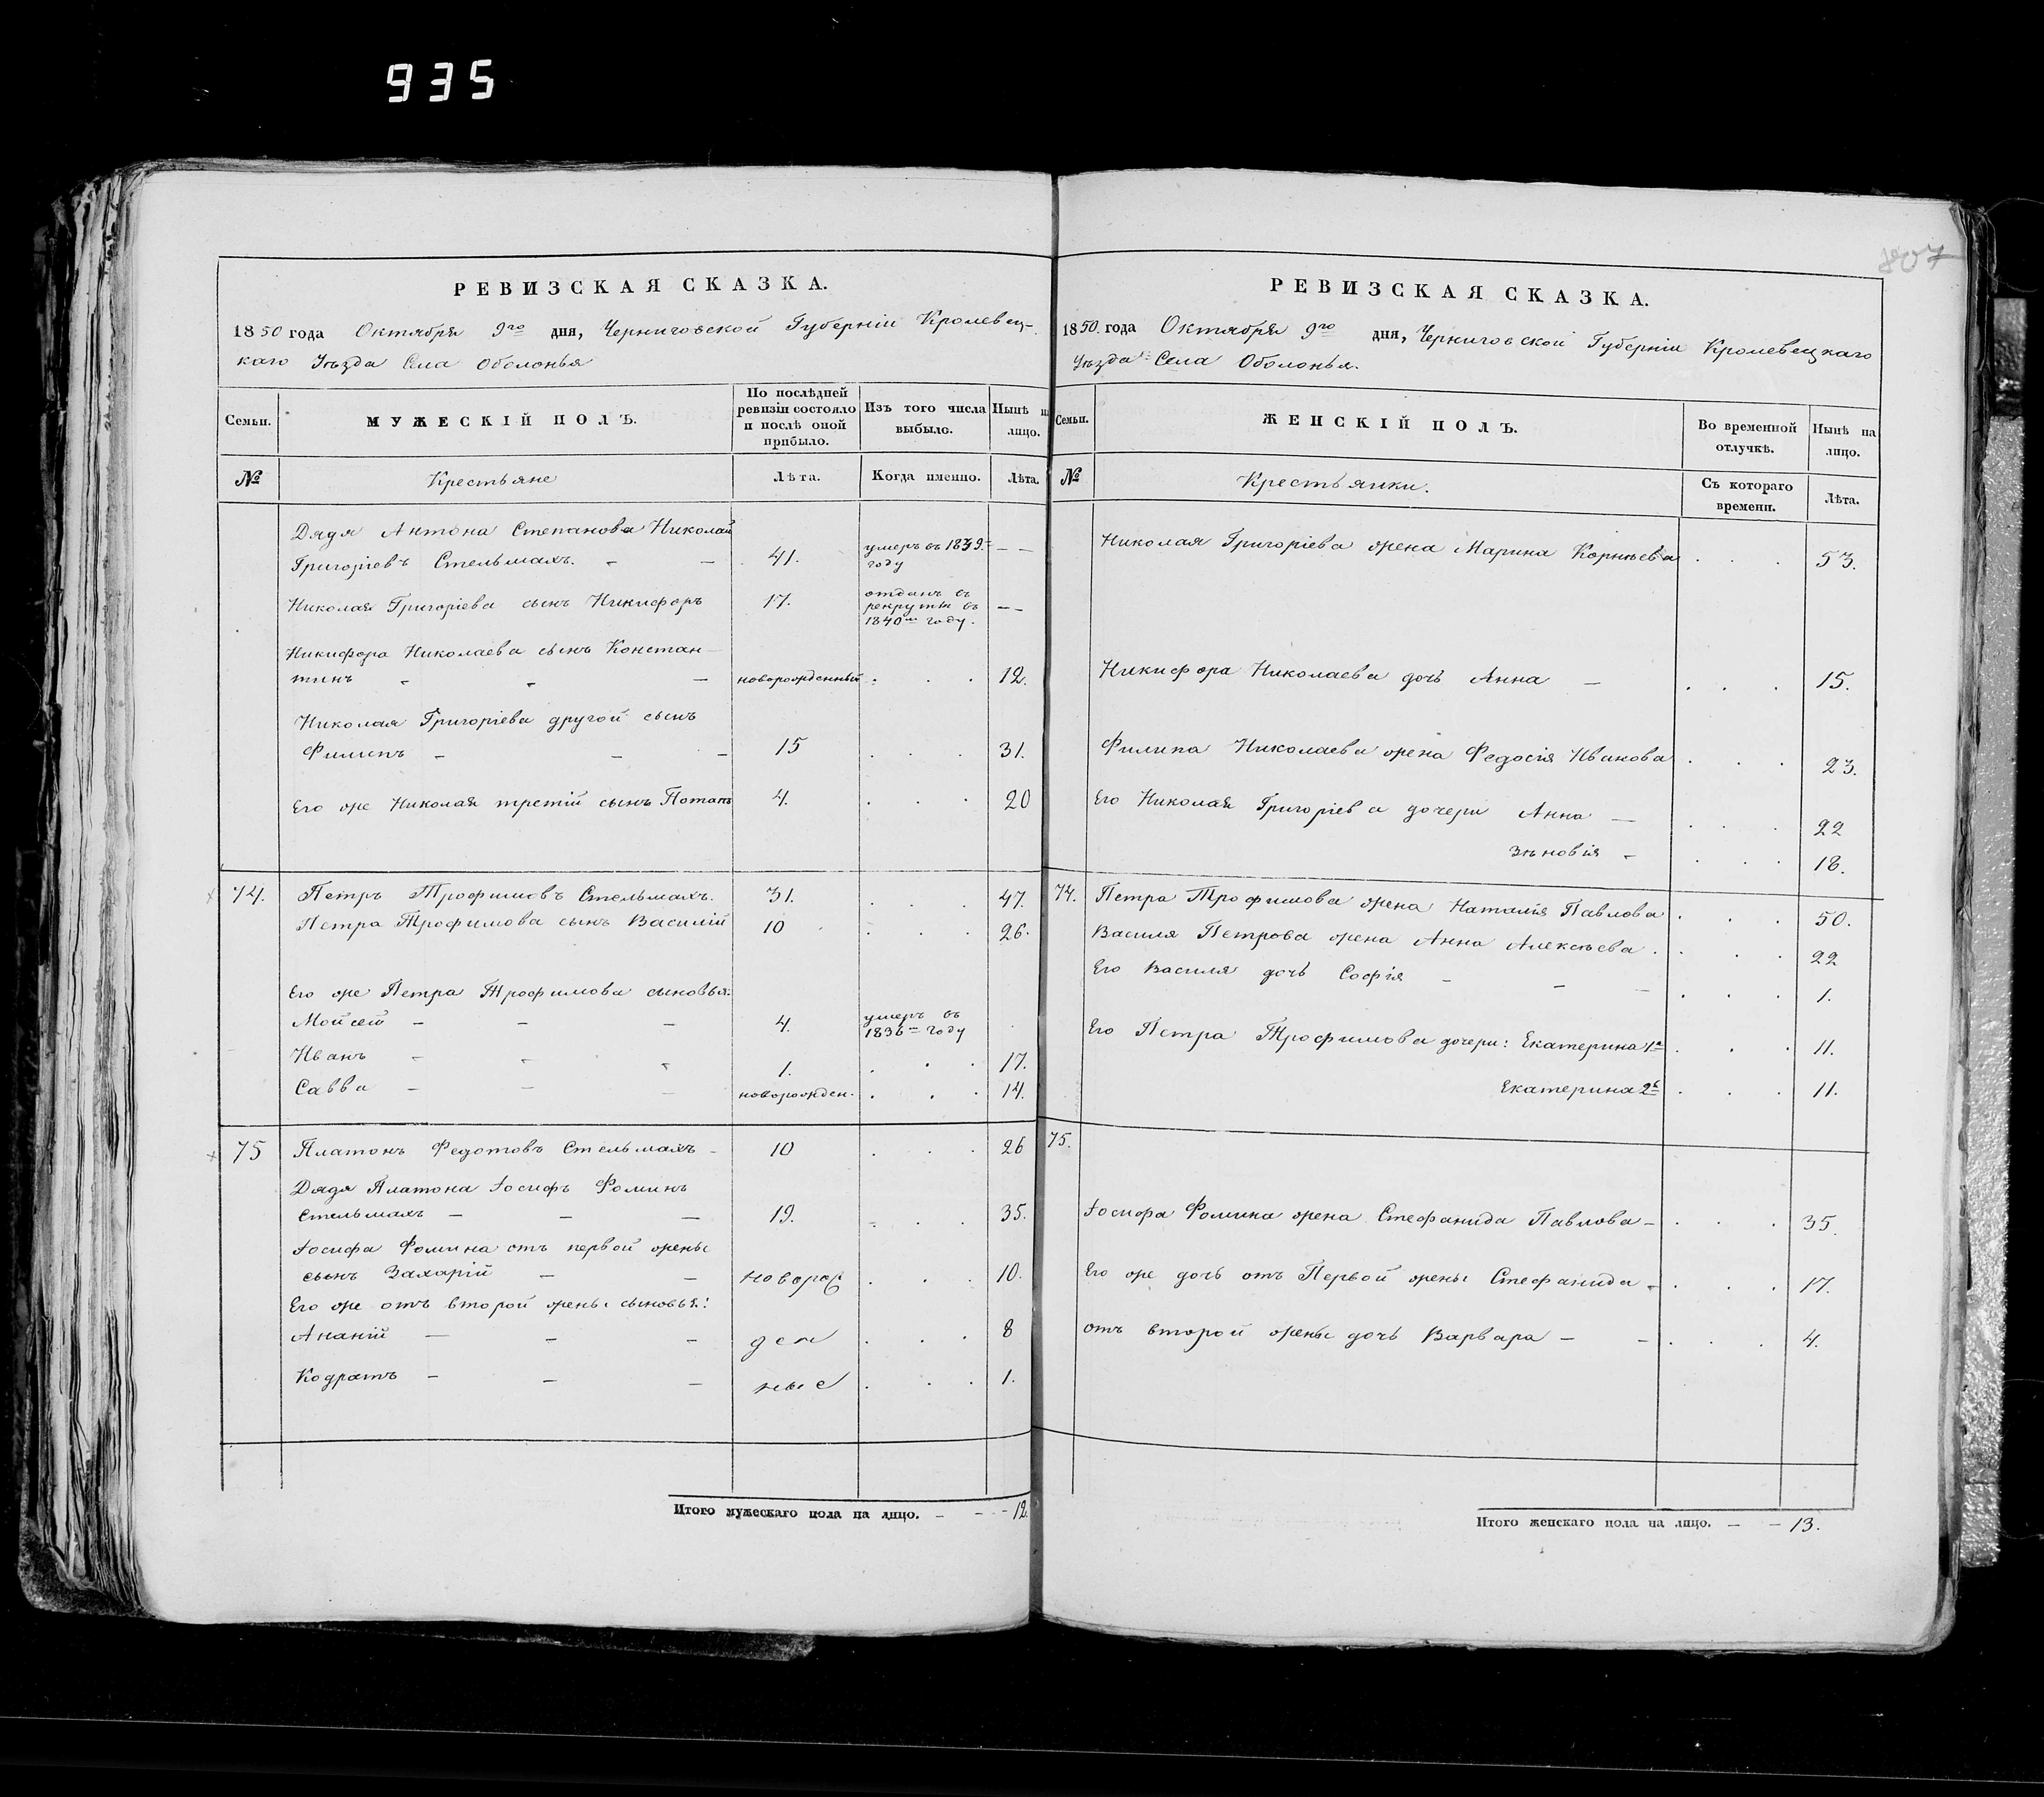 935
807
РЕВИЗСКАЯ СКАЗКА.
1850 года Октября 9го дня, Черниговской Губерніи Кролевец-
каго Уѣзда Села Оболонья
Семьи. МУЖЕСКІЙ ПОЛЪ. По послѣдней ревизіи состояло и послѣ оной прибыло. Изъ того числа выбыло. Нынѣ на лицо.
№ Крестьяне Лѣта. Когда именно. Лѣта.
Дядя Антона Степанова Николай
Григоріевъ Стельмахъ. - - 41. умеръ въ 1839. году — —
Николая Григоріева сынъ Никифоръ 17. отданъ въ рекруты въ 1840м году. — —
Никифора Николаева сынъ Констан-
тинъ - - - новорожденный . . . 12.
Николая Григоріева другой сынъ
Филипъ - - - 15 . . . 31.
Его же Николая третій сынъ Потапъ 4. . . . 20
74. Петръ Трофимовъ Стельмахъ. 31. . . . 47.
Петра Трофимова сынъ Василій 10 . . . 26.
Его же Петра Трофимова сыновья:
Мойсей - - - 4. умеръ въ 1836м году
Иванъ - - - 1. . . . 17.
Савва - - - новорожден. . . . 14.
75 Платонъ Федотовъ Стельмахъ - 10 . . . 26
Дядя Платона Іосифъ Фоминъ
Стельмахъ - - - 19. . . . 35.
Іосифа Фомина отъ первой жены
сынъ Захарій - - новорож . . . 10.
Его же отъ второй жены сыновья:
Ананій - - - ден . . . 8
Кодратъ - - - ные . . . 1.
Итого мужескаго пола на лицо. - - - 12.
РЕВИЗСКАЯ СКАЗКА.
1850 года Октября 9го дня, Черниговской Губерніи Кролевецкаго
Уѣзда Села Оболонья.
Семьи. ЖЕНСКІЙ ПОЛЪ. Во временной отлучкѣ. Нынѣ на лицо.
№ Крестьянки. Съ котораго времени. Лѣта.
Николая Григоріева жена Марина Корнѣева . . . 53.
Никифора Николаева дочь Анна - . . . 15.
Филипа Николаева жена Федосія Иванова . . . 23.
Его Николая Григоріева дочери Анна - . . . 22
Зѣновія - . . . 18.
74. Петра Трофимова жена Наталія Павлова . . . 50.
Василя Петрова жена Анна Алексѣева . . . 22
Его Василя дочь Софія - - - . . . 1.
Его Петра Трофимова дочери: Екатерина 1я . . . 11.
Екатерина 2я . . . 11.
75.
Іосифа Фомина жена Стефанида Павлова - . . . 35.
Его же дочь отъ Первой жены Стефанида - . . . 17.
отъ второй жены дочь Варвара - - . . . 4.
Итого женскаго пола на лицо. - - 13.